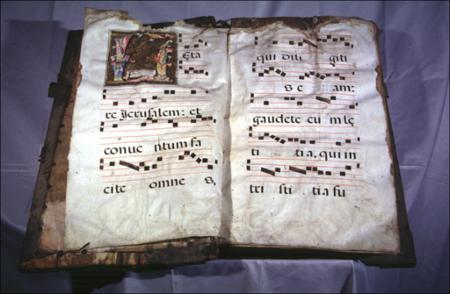 LETA
re Jerusalem: et
conue ntum fa
cite omne s,
qui dili giti
s e am:
gaudete cu m le
ti tia, qui in
tri sti tia fu